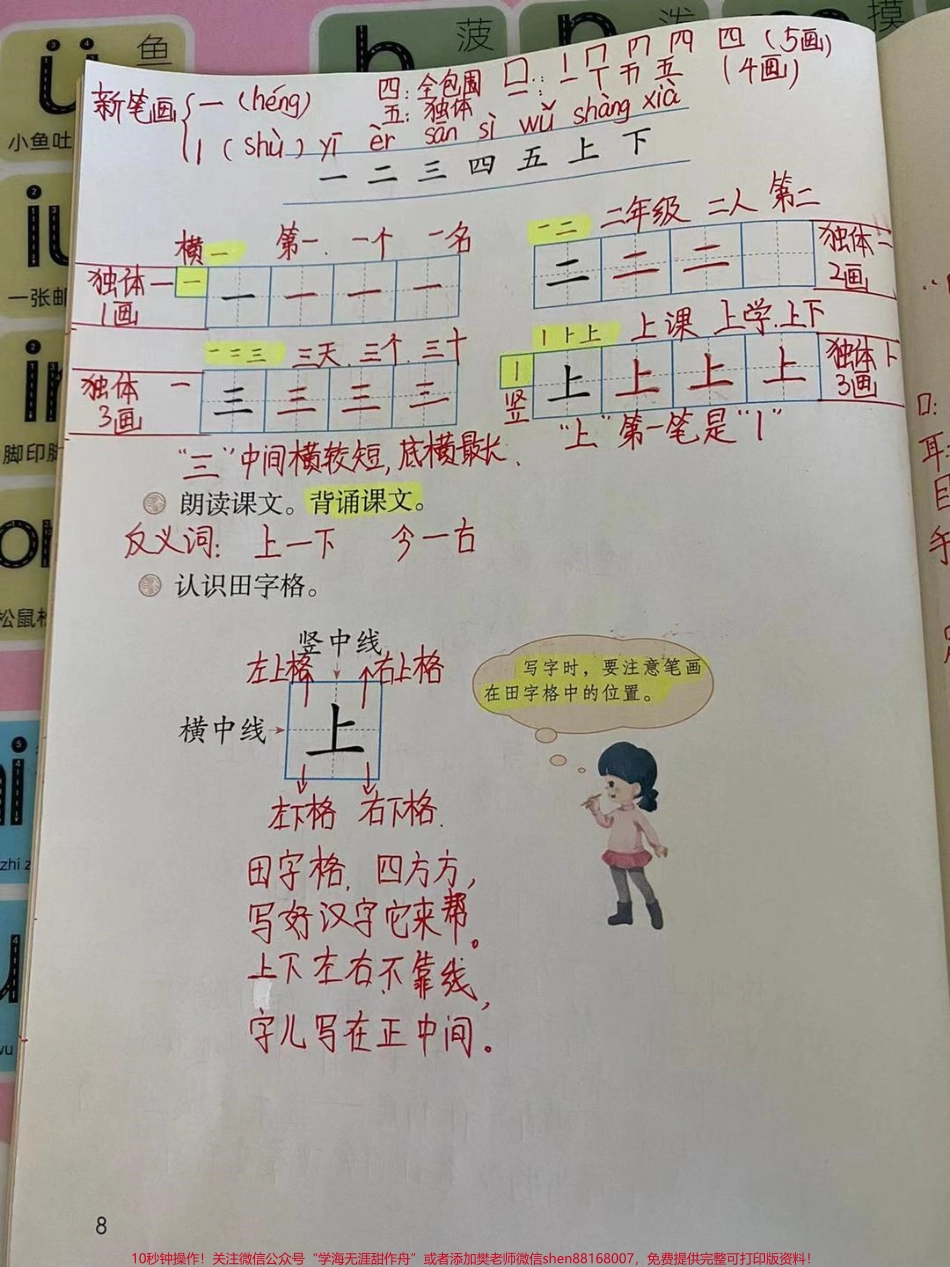 鱼
菠
泼
摸
小鱼吐
一张邮
脚印脚
松鼠松
zhi z
wu
新笔画 一（héng）
丨（shù）
四：全包围 囗 丨 冂 四 四（5画）
五：独体 一：一 丁 五 五（4画）
yī èr sān sì wǔ shàng xià
一 二 三 四 五 上 下
横一 第一、一个 一名
独体 一
1画
一 一 一 一 一
一二 二年级 二人 第二
二 二 二
独体 二
2画
一二三 三天、三个、三十
独体 一
3画
三 三 三 三
丨⺊上 上课 上学、上下
丨
竖
上 上 上 上
独体 卜
3画
“三”中间横较短，底横最长、
“上”第一笔是“丨”
朗读课文。背诵课文。
反义词：上一下 今一右
认识田字格。
竖中线
左上格 右上格
横中线
上
左下格 右下格.
写字时，要注意笔画
在田字格中的位置。
田字格、四方方，
写好汉字它来帮。
上下左右不靠线，
字儿写在正中间。
口：
耳：
目
手
8
10秒钟操作！关注微信公众号“学海无涯甜作舟”或者添加樊老师微信shen88168007，免费提供完整可打印版资料！